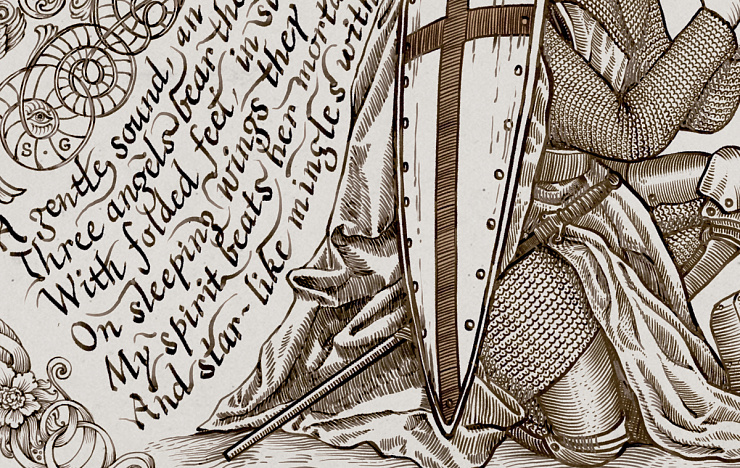 S · G
A gentle sound, an
Three angels bear the
With folded feet, in
On sleeping wings they
My spirit beats her morta
And star-like mingles with